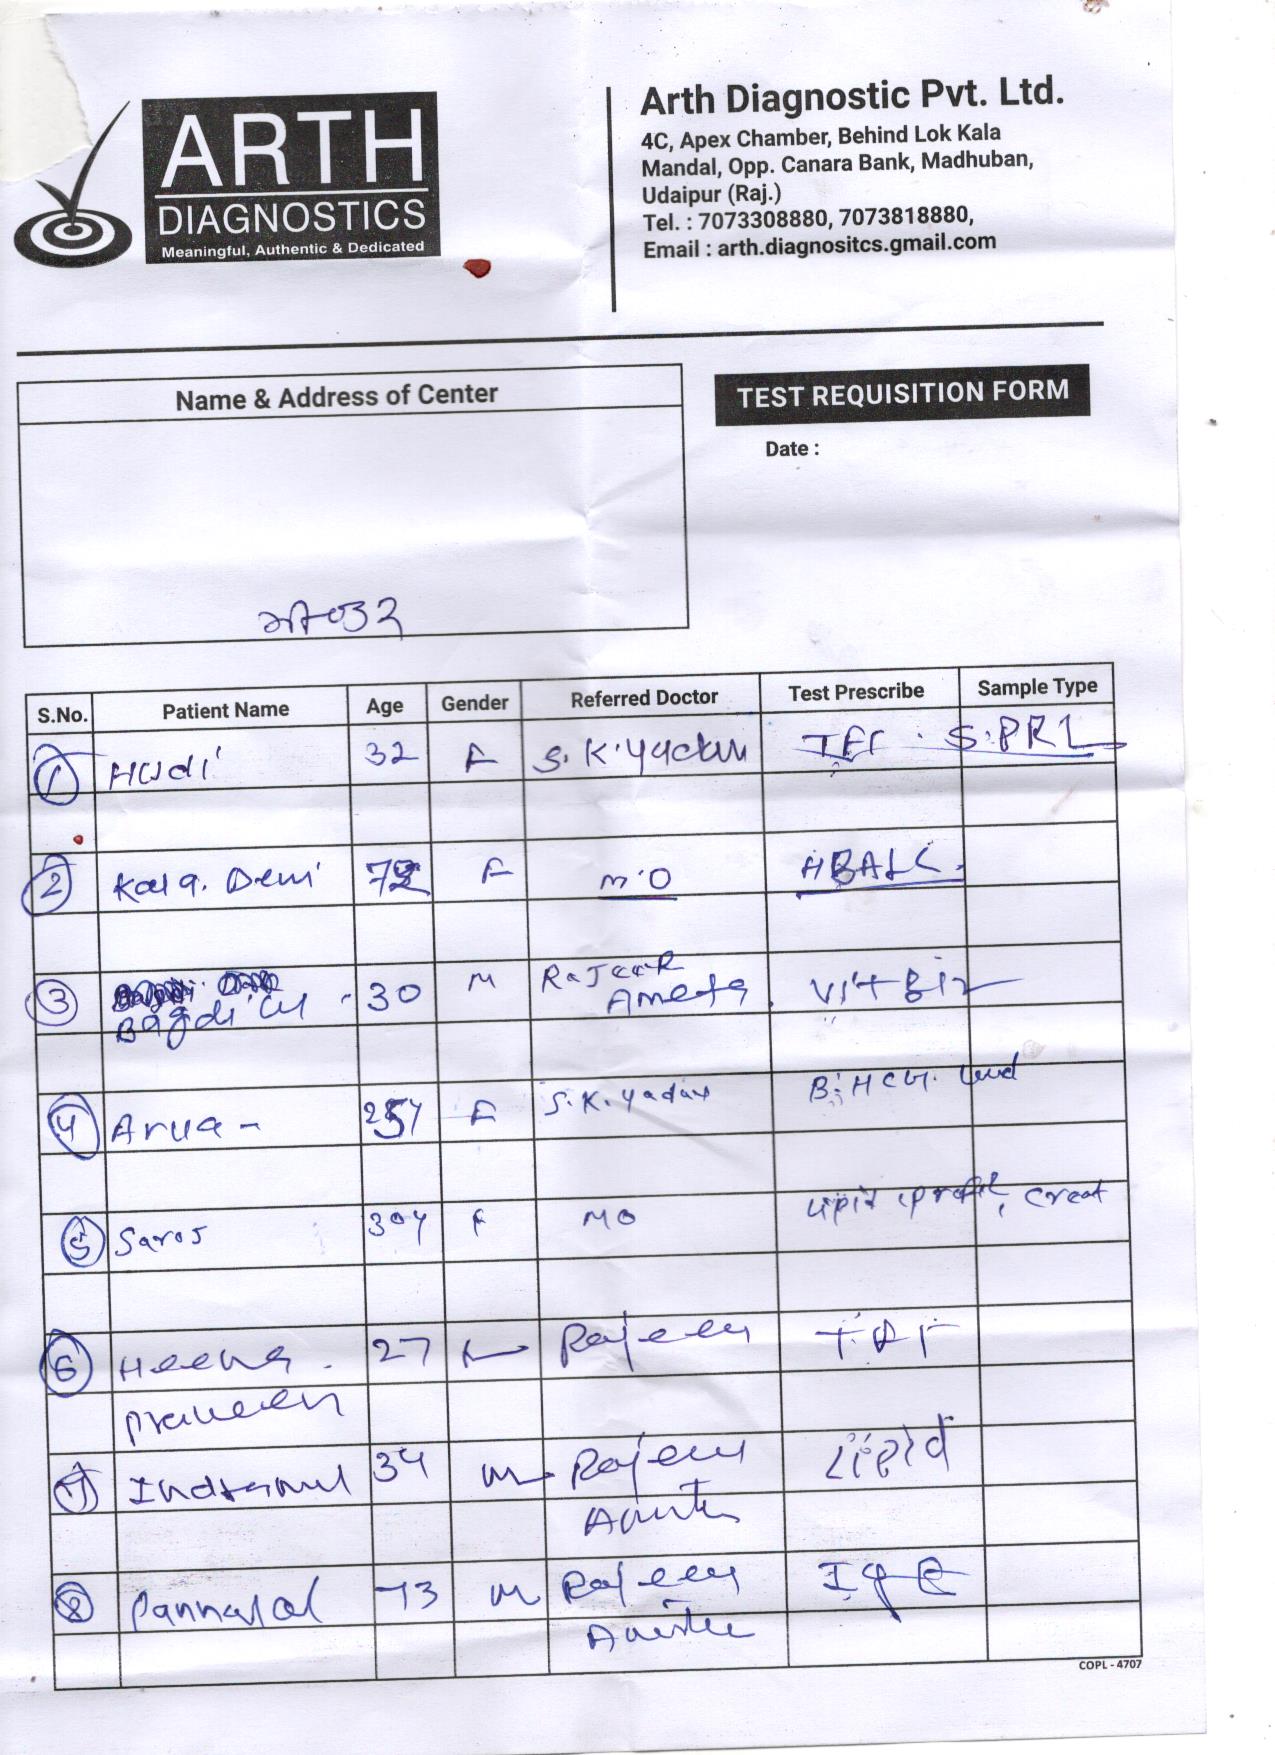 ARTH
DIAGNOSTICS
Meaningful, Authentic & Dedicated
Arth Diagnostic Pvt. Ltd.
4C, Apex Chamber, Behind Lok Kala
Mandal, Opp. Canara Bank, Madhuban,
Udaipur (Raj.)
Tel. : 7073308880, 7073818880,
Email : arth.diagnositcs.gmail.com
Name & Address of Center
TEST REQUISITION FORM
Date :
S.No. Patient Name Age Gender Referred Doctor Test Prescribe Sample Type
1 Hudi 32 F S.K. Yadav S.PRL
2 Kala. Devi F M.O HBA1C.
3 Bagdi 30 M Rajeev Ameta. Vit B12
4 F S.K. Yadav B.HCG.
5 Saroj 30y F MO Lipid Profil, Creat
6 Heena 27 Rajeev
Praveen
7 Indramal 34 M Rajeev Lipid
8 Pannalal 73 M Rajeev IgE
COPL - 4707